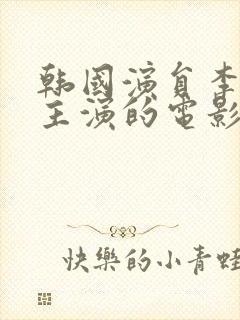 韩國演員李
主演的電影
快樂的小青蛙